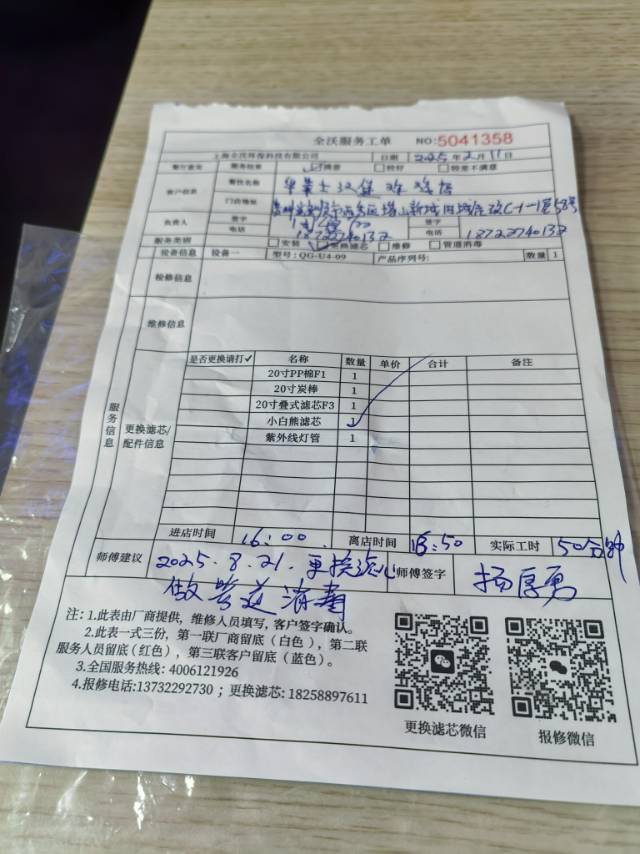 全沃服务工单 NO:5041358
上海全沃环保科技有限公司 日期 2025年2月11日
服务结果 满意 较好 较重不满意
客户信息 餐饮名称 华莱士汉堡炸鸡店
门店地址
负责人 签字 签字
电话 电话 13727740132
服务类别 安装 更换滤芯 维修 管道消毒
设备信息 设备一 型号:QG-U4-09 产品序列号: 数量 1
检修信息
维修信息
服务信息
更换滤芯/配件信息
是否更换请打✓ 名称 数量 单价 合计 备注
20寸PP棉F1 1
20寸炭棒 1
20寸叠式滤芯F3 1
小白熊滤芯 1
紫外线灯管 1
进店时间 16:00 离店时间 18:50 实际工时 50分钟
师傅建议 2025.8.21.更换滤心 师傅签字 杨厚勇
做管道消毒
注:1.此表由厂商提供,维修人员填写,客户签字确认。
2.此表一式三份,第一联厂商留底(白色),第二联
服务人员留底(红色),第三联客户留底(蓝色)。
3.全国服务热线:4006121926
4.报修电话:13732292730;更换滤芯:18258897611
更换滤芯微信 报修微信